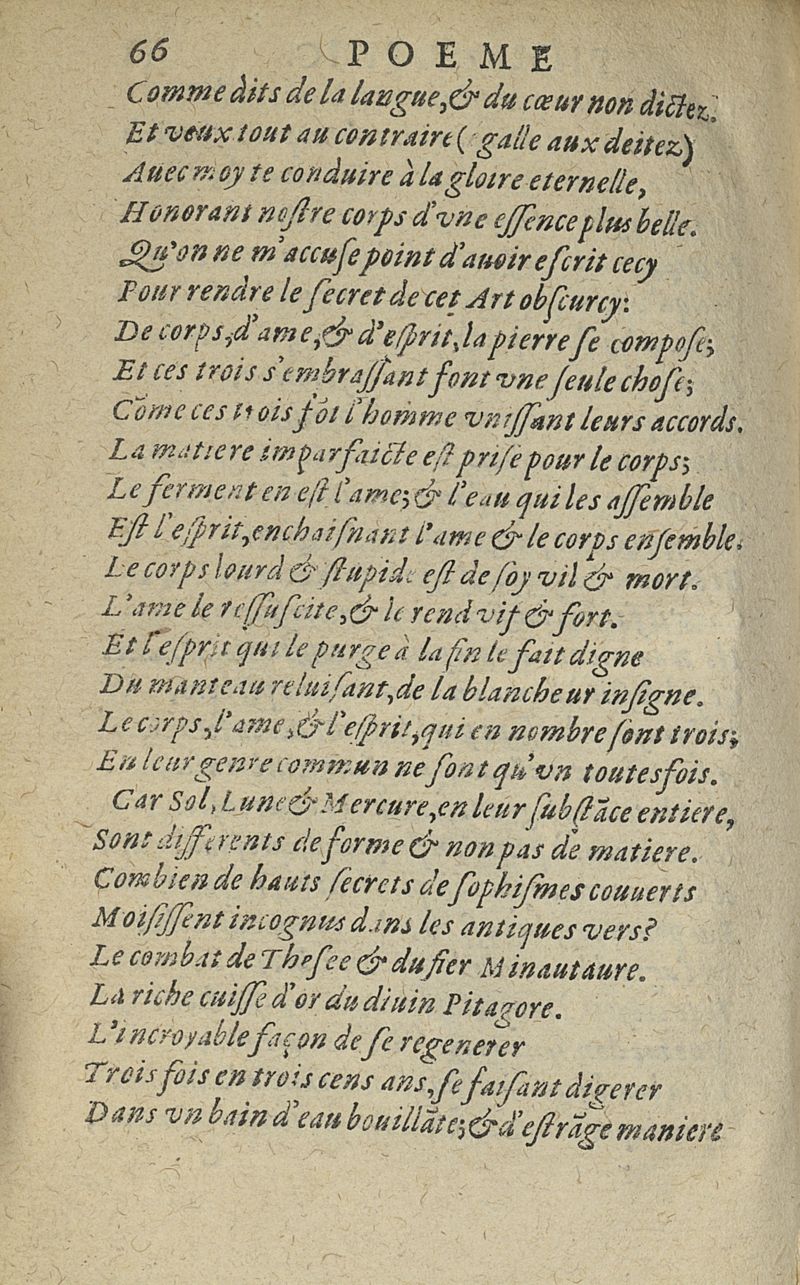 66 POEME
Comme dits de la langue, & du cœur non dictez.
Et veux tout au contraire ( galle aux deitez)
Auec moy te conduire à la gloire eternelle,
Honorant nostre corps d'vne essence plus belle.
Qu'on ne m'accuse point d'auoir escrit cecy
Pour rendre le secret de cet Art obscurcy:
De corps, d'ame, & d'esprit, la pierre se compose;
Et ces trois s'embrassant font vne seule chose;
Cõme ces trois fõt l'homme vnissant leurs accords.
La matiere imparfaicte est prise pour le corps;
Le ferment en est l'ame; & l'eau qui les assemble
Est l'esprit, enchaisnant l'ame & le corps ensemble.
Le corps lourd & stupide est de soy vil & mort.
L'ame le ressuscite, & le rend vif & fort.
Et l'esprit qui le purge à la fin le fait digne
Du manteau reluisant, de la blancheur insigne.
Le corps, l'ame, & l'esprit, qui en nombre sont trois;
En leur genre commun ne sont qu'vn toutesfois.
Car Sol, Lune & Mercure, en leur substãce entiere,
Sont differents de forme & non pas de matiere.
Combien de hauts secrets de sophismes couuerts
Moisissent incognus dans les antiques vers?
Le combat de Thesee & du fier Minautaure.
La riche cuisse d'or du diuin Pitagore.
L'incroyable façon de se regenerer
Trois fois en trois cens ans, se faisant digerer
Dans vn bain d'eau bouillãte; & d'estrãge maniere